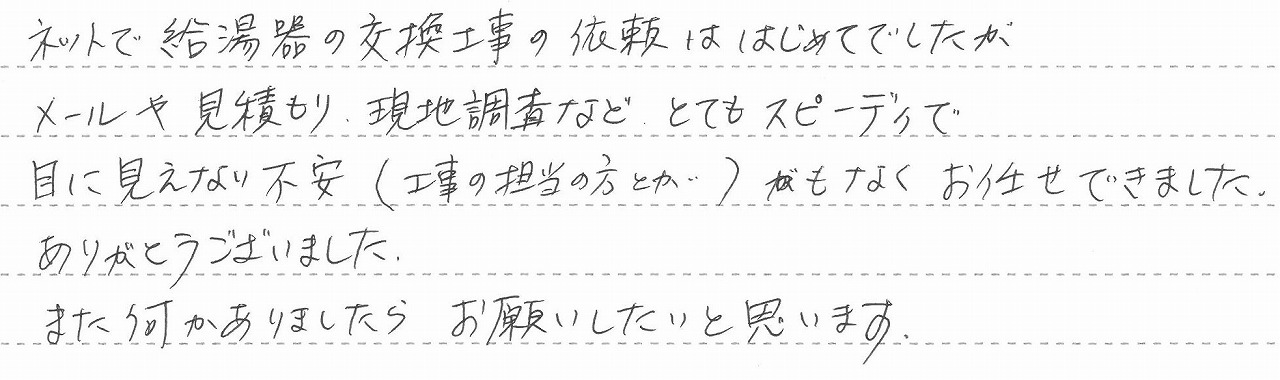 ネットで給湯器の交換工事の依頼は はじめてでしたが
メールや見積もり、現地調査など、とてもスピーディで
目に見えない不安(工事の担当の方とか…)がもなくお任せできました。
ありがとうございました。
また何かありましたら お願いしたいと思います。